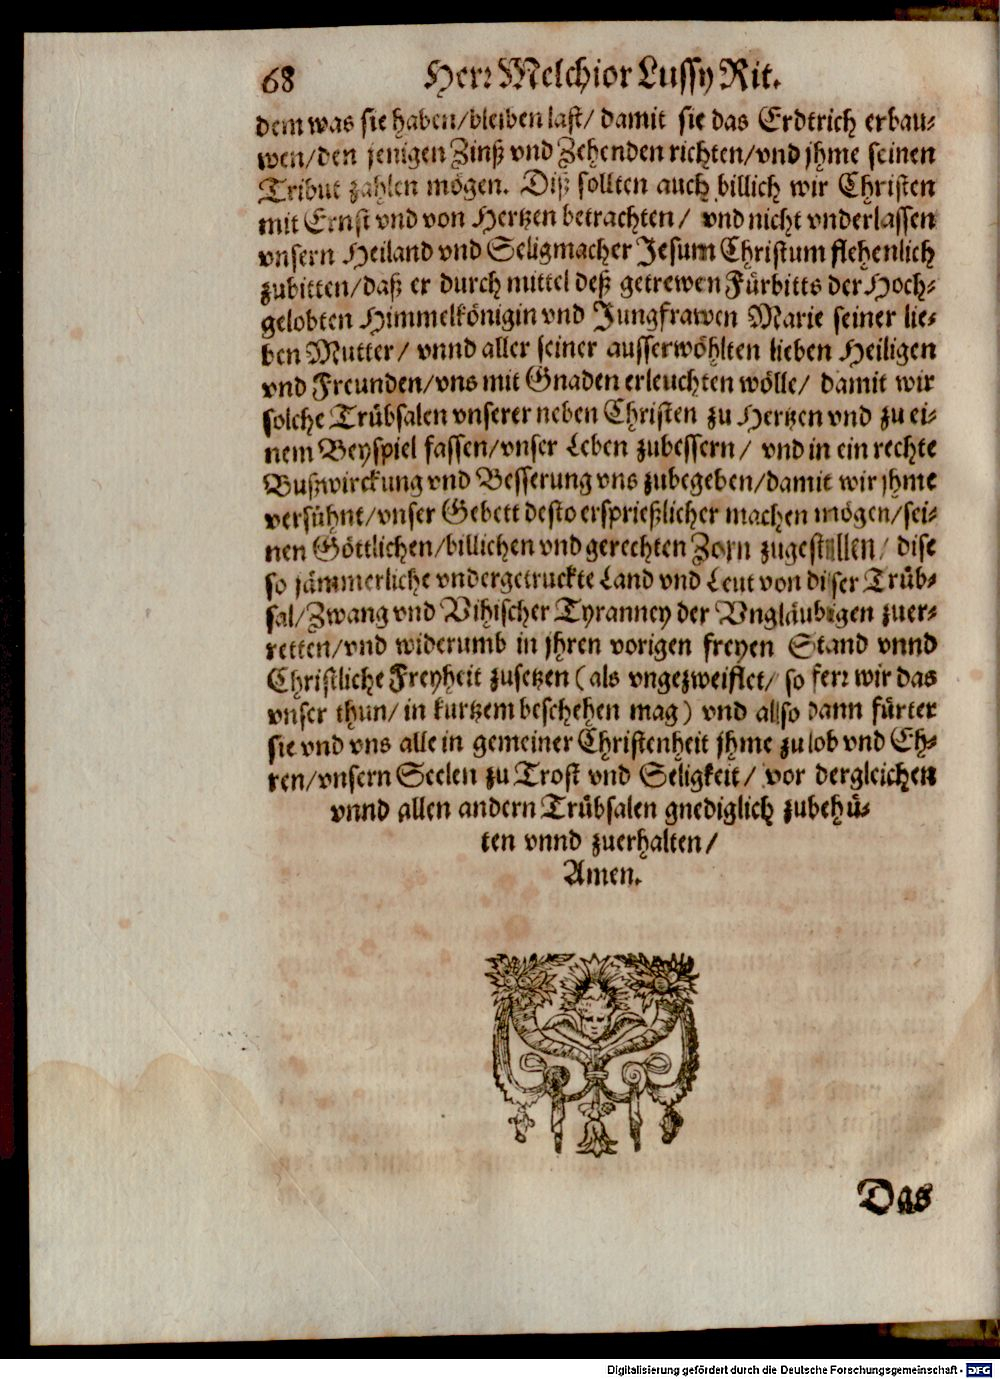 68 Herr Melchior Lussy Rit.
dem was sie haben/bleiben last/ damit sie das Erdtrich erbau-
wen/den jenigen Zinß vnd Zehenden richten/vnd jhme seinen
Tribut zahlen mögen. Diß sollten auch billich wir Christen
mit Ernst vnd von Hertzen betrachten/ vnd nicht vnderlassen
vnsern Heiland vnd Seligmacher Jesum Christum flehenlich
zubitten/daß er durch mittel deß getrewen Fürbitts der Hoch-
gelobten Himmelkönigin vnd Jungfrawen Marie seiner lie-
ben Mutter/ vnnd aller seiner ausserwöhlten lieben Heiligen
vnd Freunden/vns mit Gnaden erleuchten wölle/ damit wir
solche Trübsalen vnserer neben Christen zu Hertzen vnd zu ei-
nem Beyspiel fassen/vnser Leben zubessern/ vnd in ein rechte
Bußwirckung vnd Besserung vns zubegeben/damit wir jhme
versühnt/vnser Gebett desto ersprießlicher machen mögen/sei-
nen Göttlichen/billichen vnd gerechten Zorn zugestillen/ dise
so jämmerliche vndergetruckte Land vnd Leut von diser Trüb-
sal/Zwang vnd Vihischer Tyranney der Vngläubigen zuer-
retten/vnd widerumb in jhren vorigen freyen Stand vnnd
Christliche Freyheit zusetzen (als vngezweiflet/ so ferr wir das
vnser thun/ in kurtzem beschehen mag) vnd allso dann fürter
sie vnd vns alle in gemeiner Christenheit jhme zu lob vnd Eh-
ren/vnsern Seelen zu Trost vnd Seligkeit/ vor dergleichen
vnnd allen andern Trübsalen gnediglich zubehü-
ten vnnd zuerhalten/
Amen.
Das
Digitalisierung gefördert durch die Deutsche Forschungsgemeinschaft - DFG